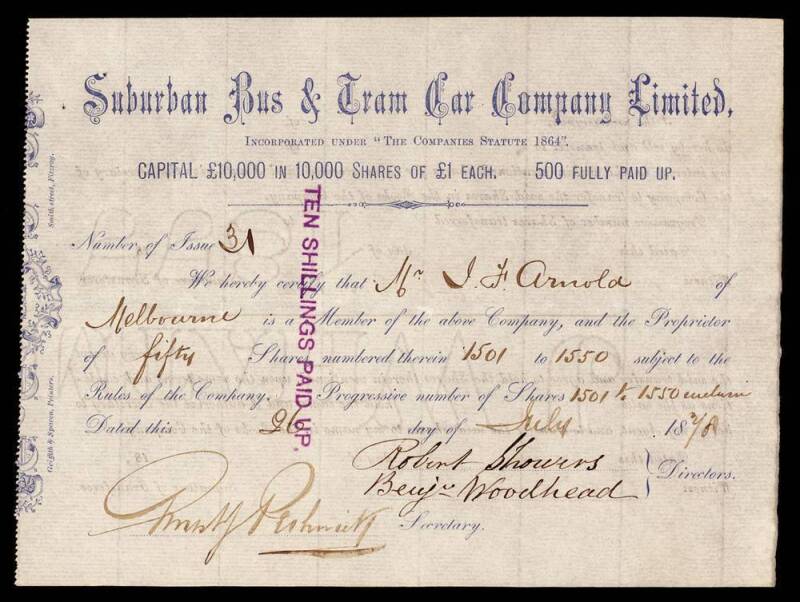 Suburban Bus & Tram Car Company Limited,
INCORPORATED UNDER "THE COMPANIES STATUTE 1864".
CAPITAL £10,000 IN 10,000 SHARES OF £1 EACH. 500 FULLY PAID UP.
Number of Issue 31
We hereby certify that Mr J. F. Arnold of
Melbourne is a Member of the above Company, and the Proprietor
of fifty Shares numbered therein 1501 to 1550 subject to the
Rules of the Company. Progressive number of Shares 1501 to 1550
Dated this 26 day of July 18
Robert Showers
Benjn Woodhead
Directors.
Secretary.
TEN SHILLINGS PAID UP.
Smith street, Fitzroy.
Griffith & Spaven, Printers.